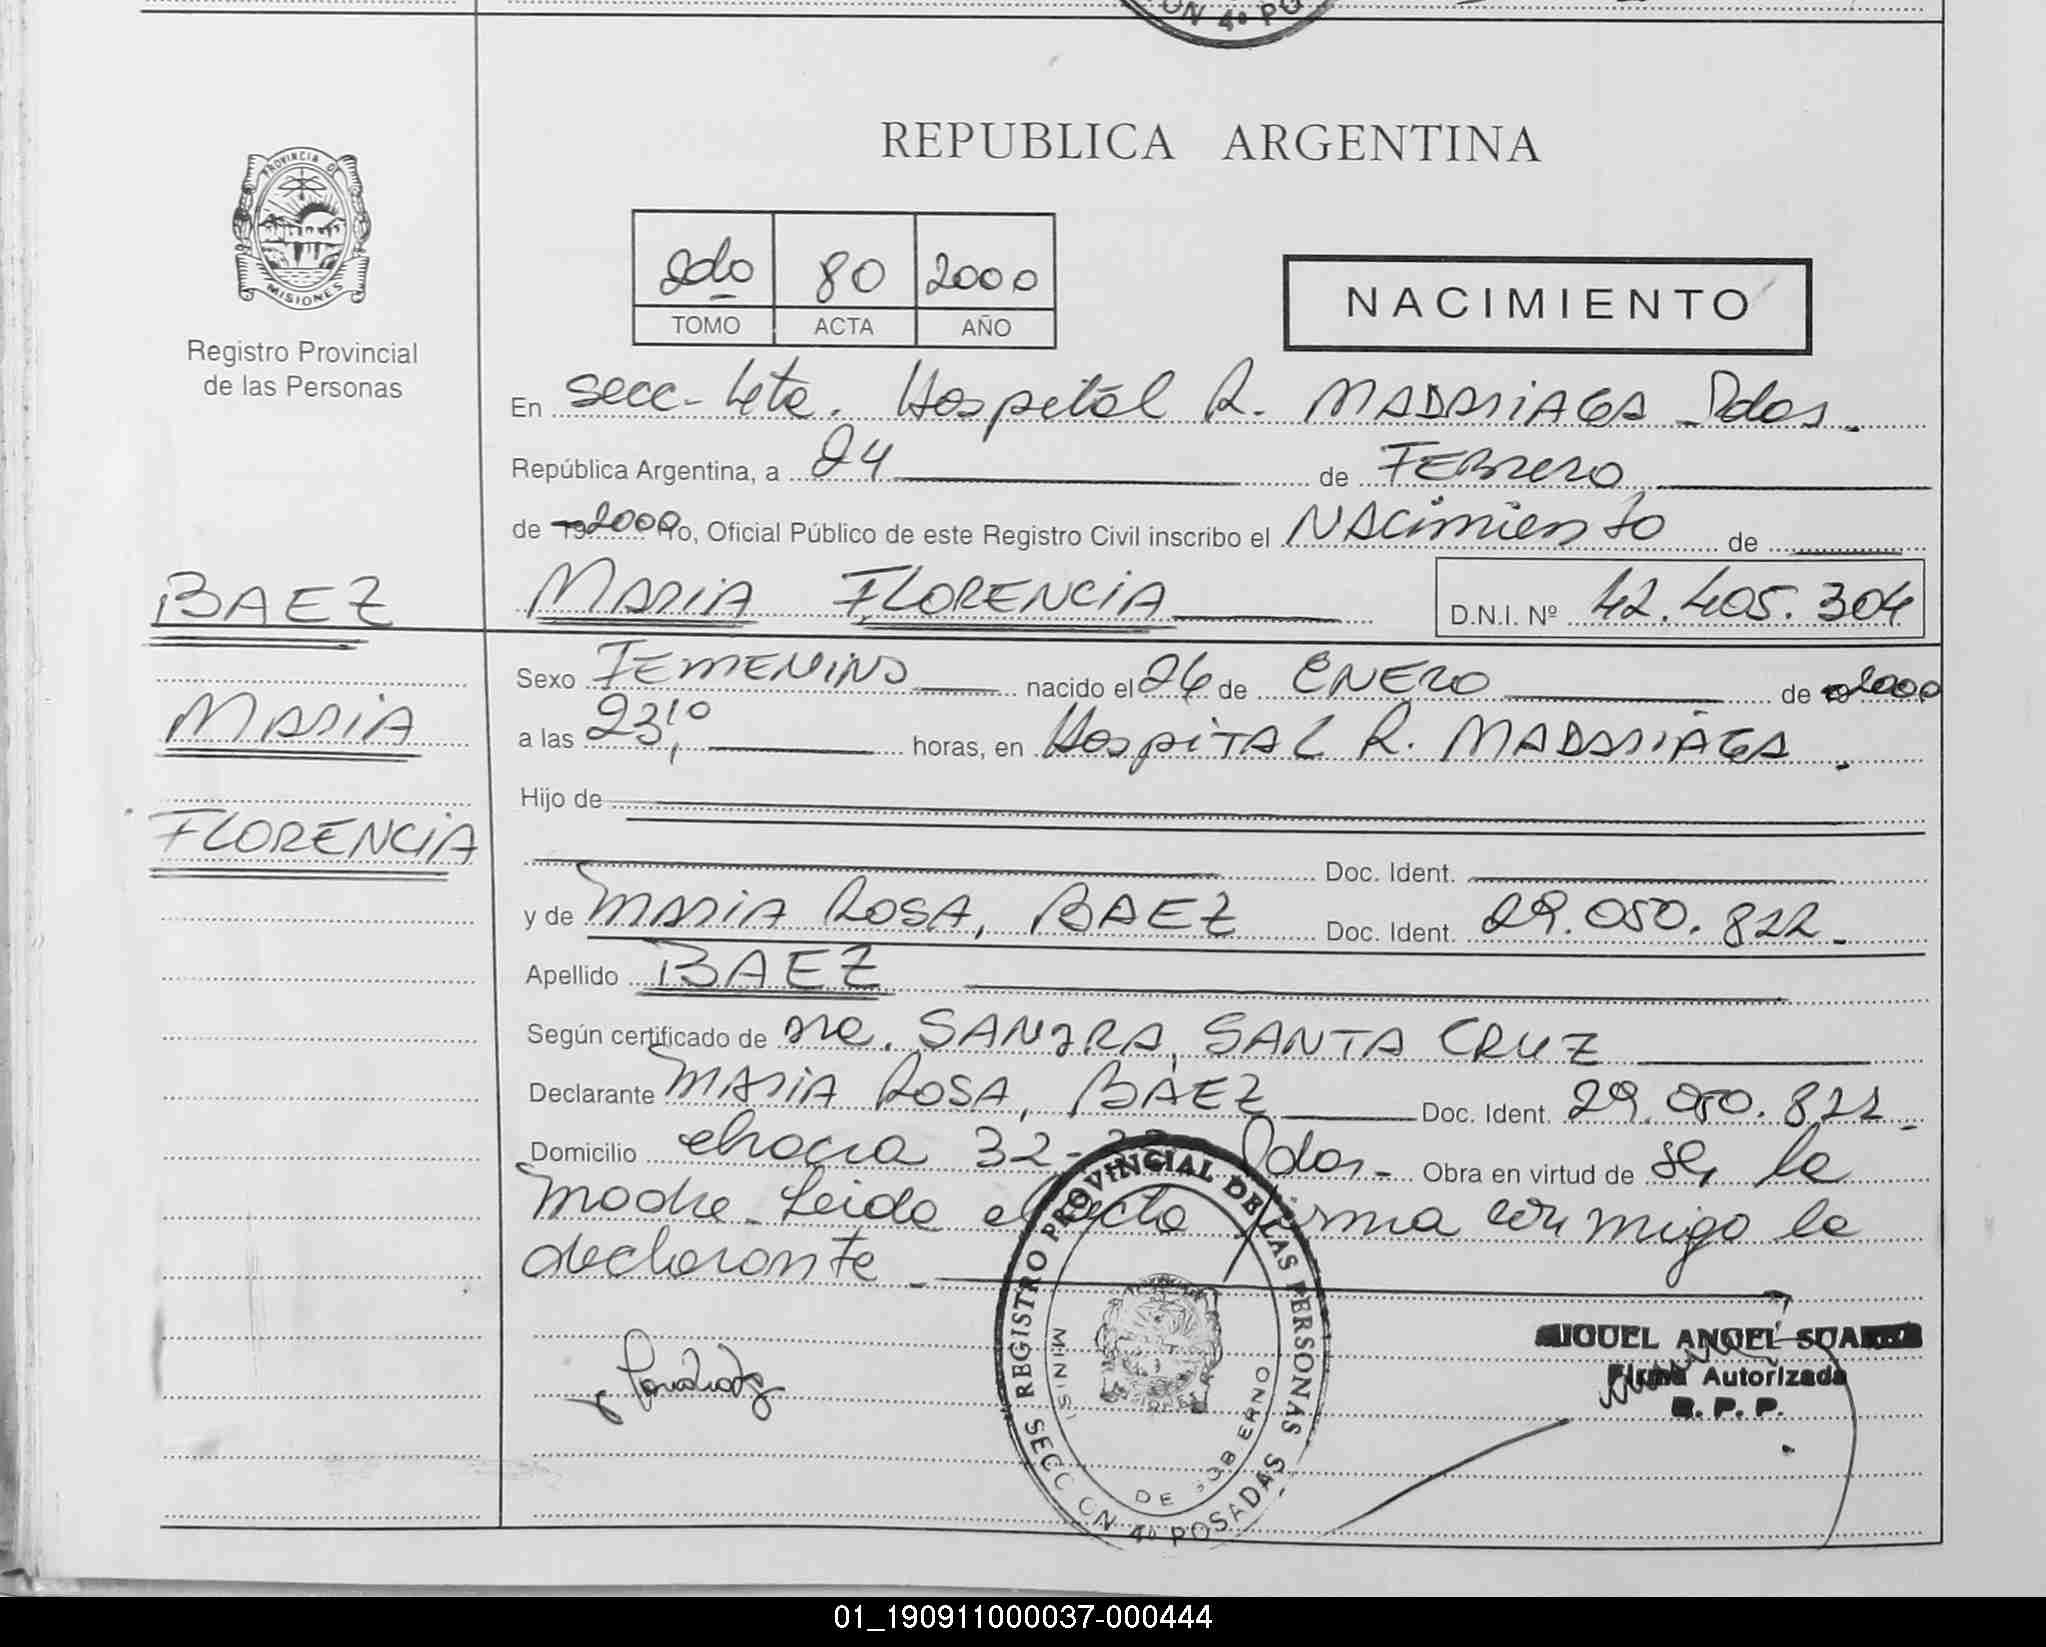 ON 4º PO
REPUBLICA ARGENTINA
PROVINCIA DE
MISIONES
Registro Provincial
de las Personas
2do 80 2000
TOMO ACTA AÑO
NACIMIENTO
En secc- 4ta. Hospital R. MADARIAGA Pdas.
República Argentina, a 24 de FEBRERO
de 2000 Yo, Oficial Público de este Registro Civil inscribo el NACimiento de
BAEZ
MARIA FLORENCIA D.N.I. Nº 42.405.304
Sexo FEMENINO nacido el 26 de ENERO de 2000
MARIA
a las 23,10 horas, en HOSPITAL R. MADARIAGA.
Hijo de
FLORENCIA
Doc. Ident.
y de MARIA ROSA, BAEZ Doc. Ident. 29.050.822
Apellido BAEZ
Según certificado de SANDRA, SANTA CRUZ
Declarante MARIA ROSA, BAEZ Doc. Ident. 29.050.822
Domicilio chacra 32- Pdas- Obra en virtud de la
madre. Leida el acta firma conmigo la
declarante
REGISTRO PROVINCIAL DE LAS PERSONAS
MINIST
DE GOBIERNO
SECCION 4º POSADAS
MIGUEL ANGEL SUAREZ
Firma Autorizada
R. P. P.
01_190911000037-000444